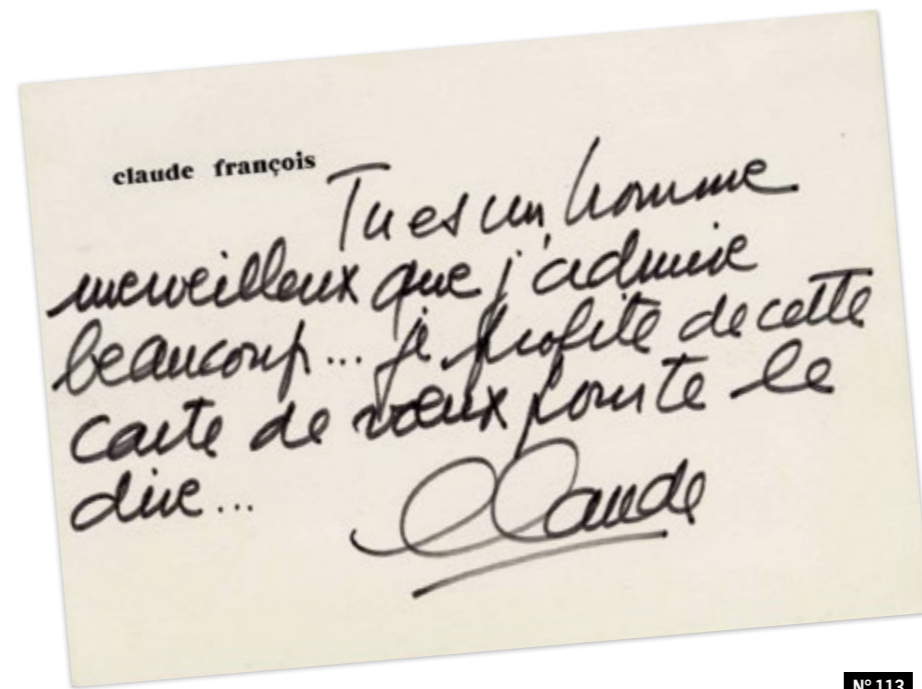 claude françois
Tu es un homme
merveilleux que j'admire
beaucoup... je profite de cette
carte de vœux pour te le
dire...
Claude
N° 113